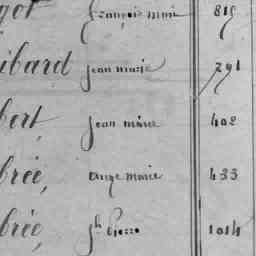 got françois marie 819
ibard jean marie 291
bert, jean marie 402
brée, ange marie 433
brée, jh pierre 1014